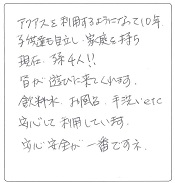 アクアスを利用するようになって10年
子供達も自立し、家庭を持ち
現在、孫4人!!
皆が遊びに来てくれます。
飲料水、お風呂、手洗いetc
安心して利用しています。
安心・安全が一番ですネ。